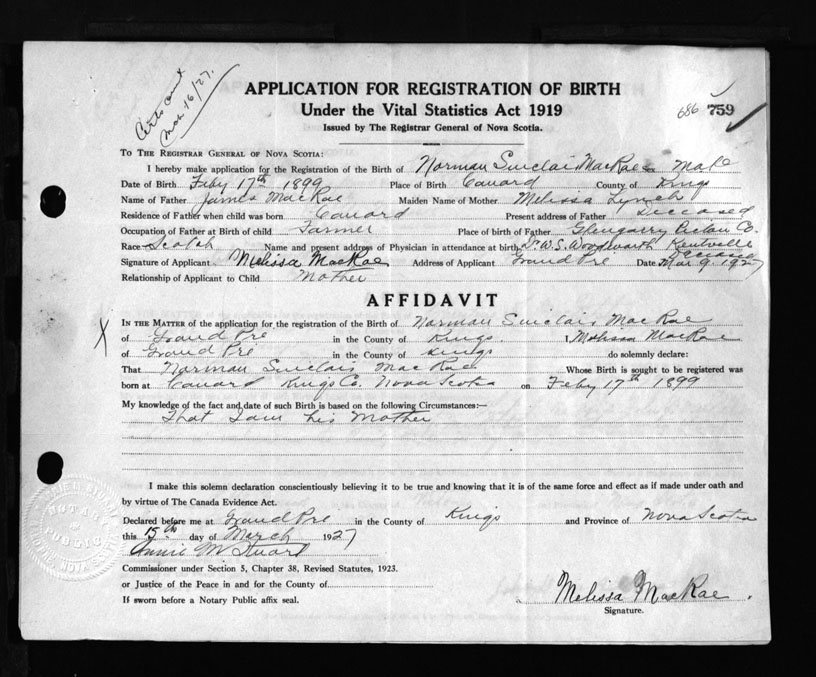 Mar 16/27.
APPLICATION FOR REGISTRATION OF BIRTH
Under the Vital Statistics Act 1919
686 759
Issued by The Registrar General of Nova Scotia.
TO THE REGISTRAR GENERAL OF NOVA SCOTIA:
I hereby make application for the Registration of the Birth of Norman Sinclair MacRae Sex Male
Date of Birth Feby 17th 1899 Place of Birth Canard County of Kings
Name of Father James MacRae Maiden Name of Mother Melissa Lynch
Residence of Father when child was born Canard Present address of Father Deceased
Occupation of Father at Birth of child Farmer Place of birth of Father Glengarry Pictou Co.
Race Scotch Name and present address of Physician in attendance at birth Dr. W.S. Woodworth Kentville
Deceased
Signature of Applicant Melissa MacRae Address of Applicant Grand Pré Date Mar 9 1927
Relationship of Applicant to Child Mother
AFFIDAVIT
X IN THE MATTER of the application for the registration of the Birth of Norman Sinclair MacRae
of Grand Pré in the County of Kings. I, Melissa MacRae
of Grand Pré in the County of Kings do solemnly declare:
That Norman Sinclair MacRae Whose Birth is sought to be registered was
born at Canard Kings Co. Nova Scotia on Feby 17th 1899
My knowledge of the fact and date of such Birth is based on the following Circumstances:—
That I am his Mother
I make this solemn declaration conscientiously believing it to be true and knowing that it is of the same force and effect as if made under oath and
by virtue of The Canada Evidence Act.
Declared before me at Grand Pré in the County of Kings and Province of Nova Scotia
this 15th day of March 1927
Annie M Stuart
Commissioner under Section 5, Chapter 38, Revised Statutes, 1923.
or Justice of the Peace in and for the County of
If sworn before a Notary Public affix seal.
Melissa MacRae.
Signature.
NOTARY
PUBLIC